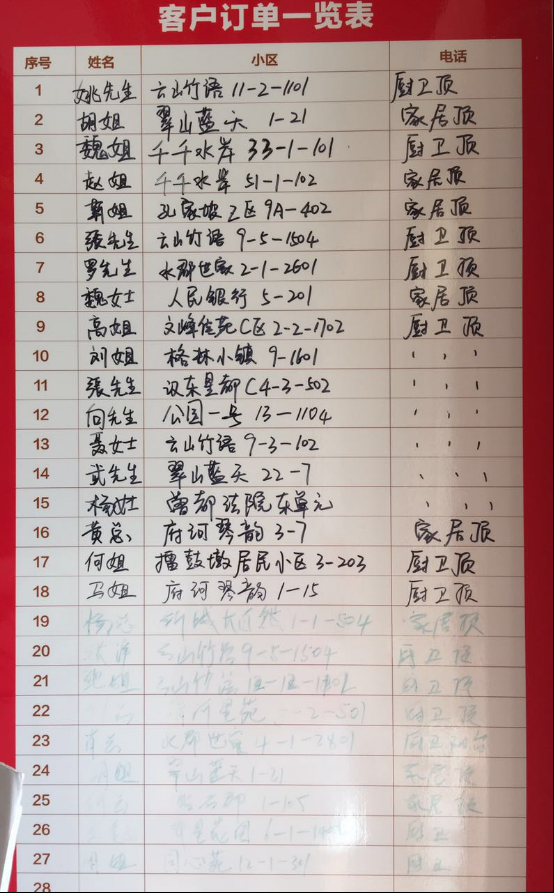 客户订单一览表
序号 姓名 小区 电话
1 姚先生 云山竹语 11-2-1101 厨卫顶
2 胡姐 翠山蓝天 1-21 家居顶
3 魏姐 千千水岸 33-1-101 厨卫顶
4 赵姐 千千水岸 51-1-102 家居顶
5 姐 孔家坡 区 9A-402 家居顶
6 張先生 云山竹语 9-5-1504 厨卫顶
7 罗先生 水郡世家 2-1-2601 厨卫顶
8 魏女士 人民银行 5-201 家居顶
9 高姐 文峰佳苑C区 2-2-1702 厨卫顶
10 刘姐 格林小镇 9-1601 、 、 、
11 張先生 汉东皇都 C4-3-502 、 、 、
12 向先生 公园一号 13-1104 、 、 、
13 聂女士 云山竹语 9-3-102 、 、 、
14 武先生 翠山蓝天 22-7 、 、 、
15 杨女士 曾都法院东单元 、 、 、
16 黄总 府河琴韵 3-7 家居顶
17 何姐 擂鼓墩居民小区 3-203 厨卫顶
18 马姐 府河琴韵 1-15 厨卫顶
19 杨 1-1-504 家居顶
20 云山竹语 9-5-1504 厨卫顶
21 姐 厨卫顶
22 2-501 厨卫顶
23 水郡世家 4-1-2401 厨卫
24 姐 翠山蓝天 1-21 家居顶
25 1-105 家居顶
26 厨卫
27 姐 12-1-301 厨卫
28